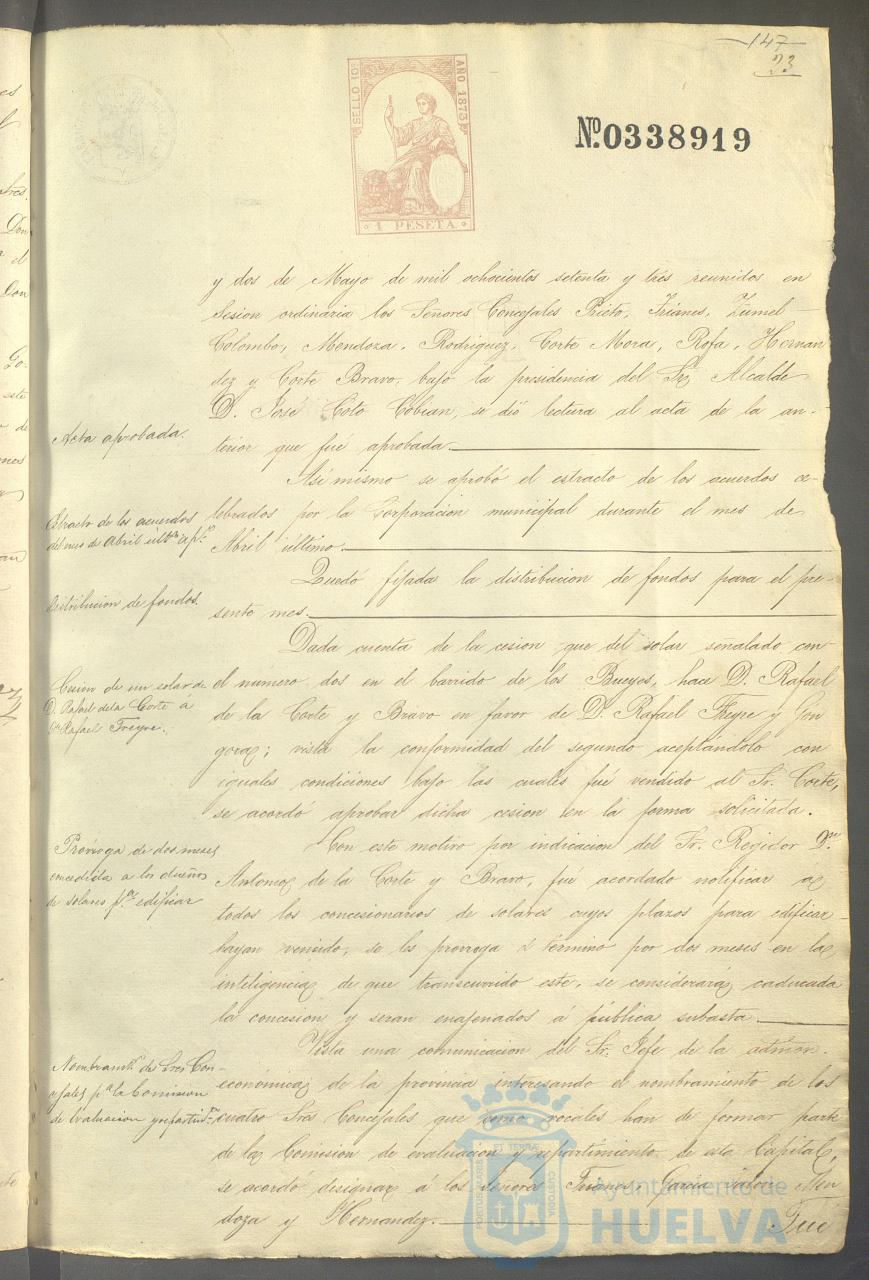 147
23
SELLO 10º AÑO 1873
1 PESETA
Nº 0338919
y dos de Mayo de mil ochocientos setenta y tres reunidos en
Sesion ordinaria los Señores Concejales Prieto, Trianes, Zumel
Colombo, Mendoza, Rodriguez, Corte Mora, Rofa, Hernan
dez y Corte Bravo, bajo la presidencia del Sr Alcalde
D. José Coto Cobian, se dió lectura al acta de la an-
Acta aprobada.
terior que fué aprobada.
Asi mismo se aprobó el estracto de los acuerdos ce-
Estracto de los acuerdos
lebrados por la Corporacion municipal durante el mes de
del mes de Abril
Abril último.
Quedó fijada la distribucion de fondos para el pre-
Distribucion de fondos.
sente mes.
Dada cuenta de la cesion que del solar señalado con
Cesion de un solar de
el numero dos en el barrido de los Bueyes, hace D. Rafael
D. Rafael de la Corte a
de la Corte y Bravo en favor de D. Rafael Freyre y Gón
Dn Rafael Freyre.
gora; vista la conformidad del segundo aceptándolo con
iguales condiciones bajo las cuales fué vendido al Sr. Corte,
se acordó aprobar dicha cesion en la forma solicitada.
Prórroga de dos meses
Con este motivo por indicacion del Sr. Regidor Dn
concedida a los dueños
Antonio de la Corte y Bravo, fué acordado notificar a
de solares pa edificar
todos los concesionarios de solares cuyos plazos para edificar
hayan vencido, se les prorroga el término por dos meses en la
inteligencia de que transcurrido este, se considerará caducada
la concesion y seran enajenados á pública subasta.
Vista una comunicacion del Sr. Jefe de la admon.
Nombramto de tres Con-
económica de la provincia interesando el nombramiento de los
cejales pa la Comision
cuatro Sres Concejales que como vocales han de formar parte
de Evaluacion y repartimto
de la Comision de evaluacion y repartimiento de esta Capital,
se acordó designar á los Señores Trianes, Garcia Men
doza y Hernandez.
Fué
PORTUS MARIS ET TERRAE CUSTODIA
Ayuntamiento de
HUELVA